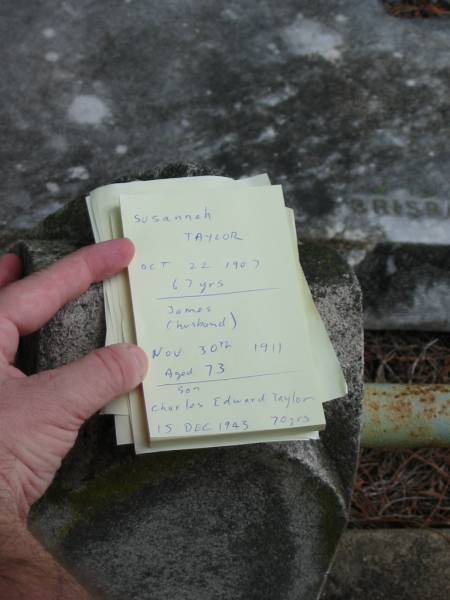 Susannah
TAYLOR
OCT 22 1907
67 yrs
James
(husband)
Nov 30TH 1911
Aged 73
son
Charles Edward Taylor
15 DEC 1943 70yrs
BRISBA